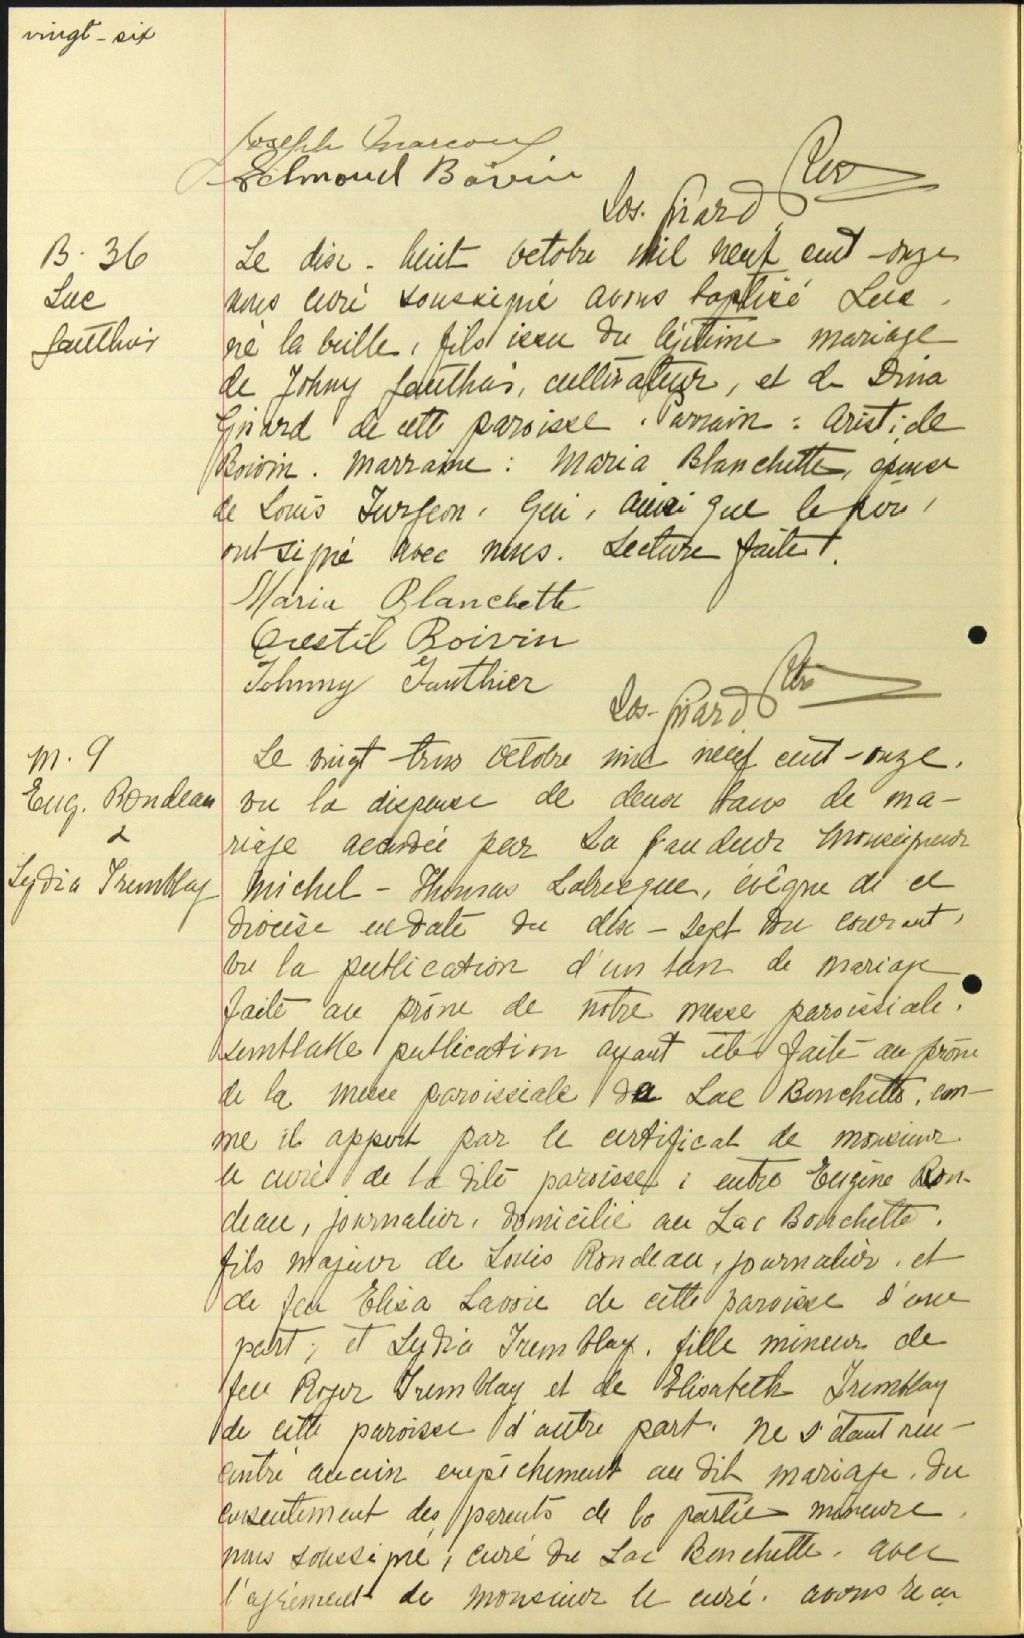 vingt-six
Joseph Marcoux
Edmond Boivin
Jos. Girard, Ptre
B. 36
Luc
Gauthier
Le dix-huit octobre mil neuf cent-onze
nous curé soussigné avons baptisé Luc,
né la veille, fils issu du légitime mariage
de Johny Gauthier, cultivateur, et de Dina
Girard de cette paroisse. Parrain : Aristide
Boivin. Marraine : Maria Blanchette, épouse
de Louis Turgeon, qui, ainsi que le père,
ont signé avec nous. Lecture faite.
Maria Blanchette
Boivin
Johnny Gauthier
Jos. Girard, Ptre
M. 9
Eug. Rondeau
&
Lydia Tremblay
Le vingt-trois octobre mil neuf cent-onze,
vu la dispense de deux bans de ma-
riage accordée par Sa Grandeur Monseigneur
Michel-Thomas Labrecque, évêque de ce
diocèse en date du dix-sept du courant,
vu la publication d'un ban de mariage
faite au prône de notre messe paroissiale,
semblable publication ayant été faite au prône
de la messe paroissiale du Lac Bouchette, com-
me il appert par le certificat de monsieur
le curé de la dite paroisse ; entre Eugène Ron-
deau, journalier, domicilié au Lac Bouchette,
fils majeur de Louis Rondeau, journalier, et
de feu Elisa Lavoie de cette paroisse d'une
part ; et Lydia Tremblay, fille mineure de
feu Roger Tremblay et de Elisabeth Tremblay
de cette paroisse d'autre part. Ne s'étant ren-
contré aucun empêchement au dit mariage, du
consentement des parents de la partie mineure,
nous soussigné, curé du Lac Bouchette, avec
l'agrément de monsieur le curé, avons reçu